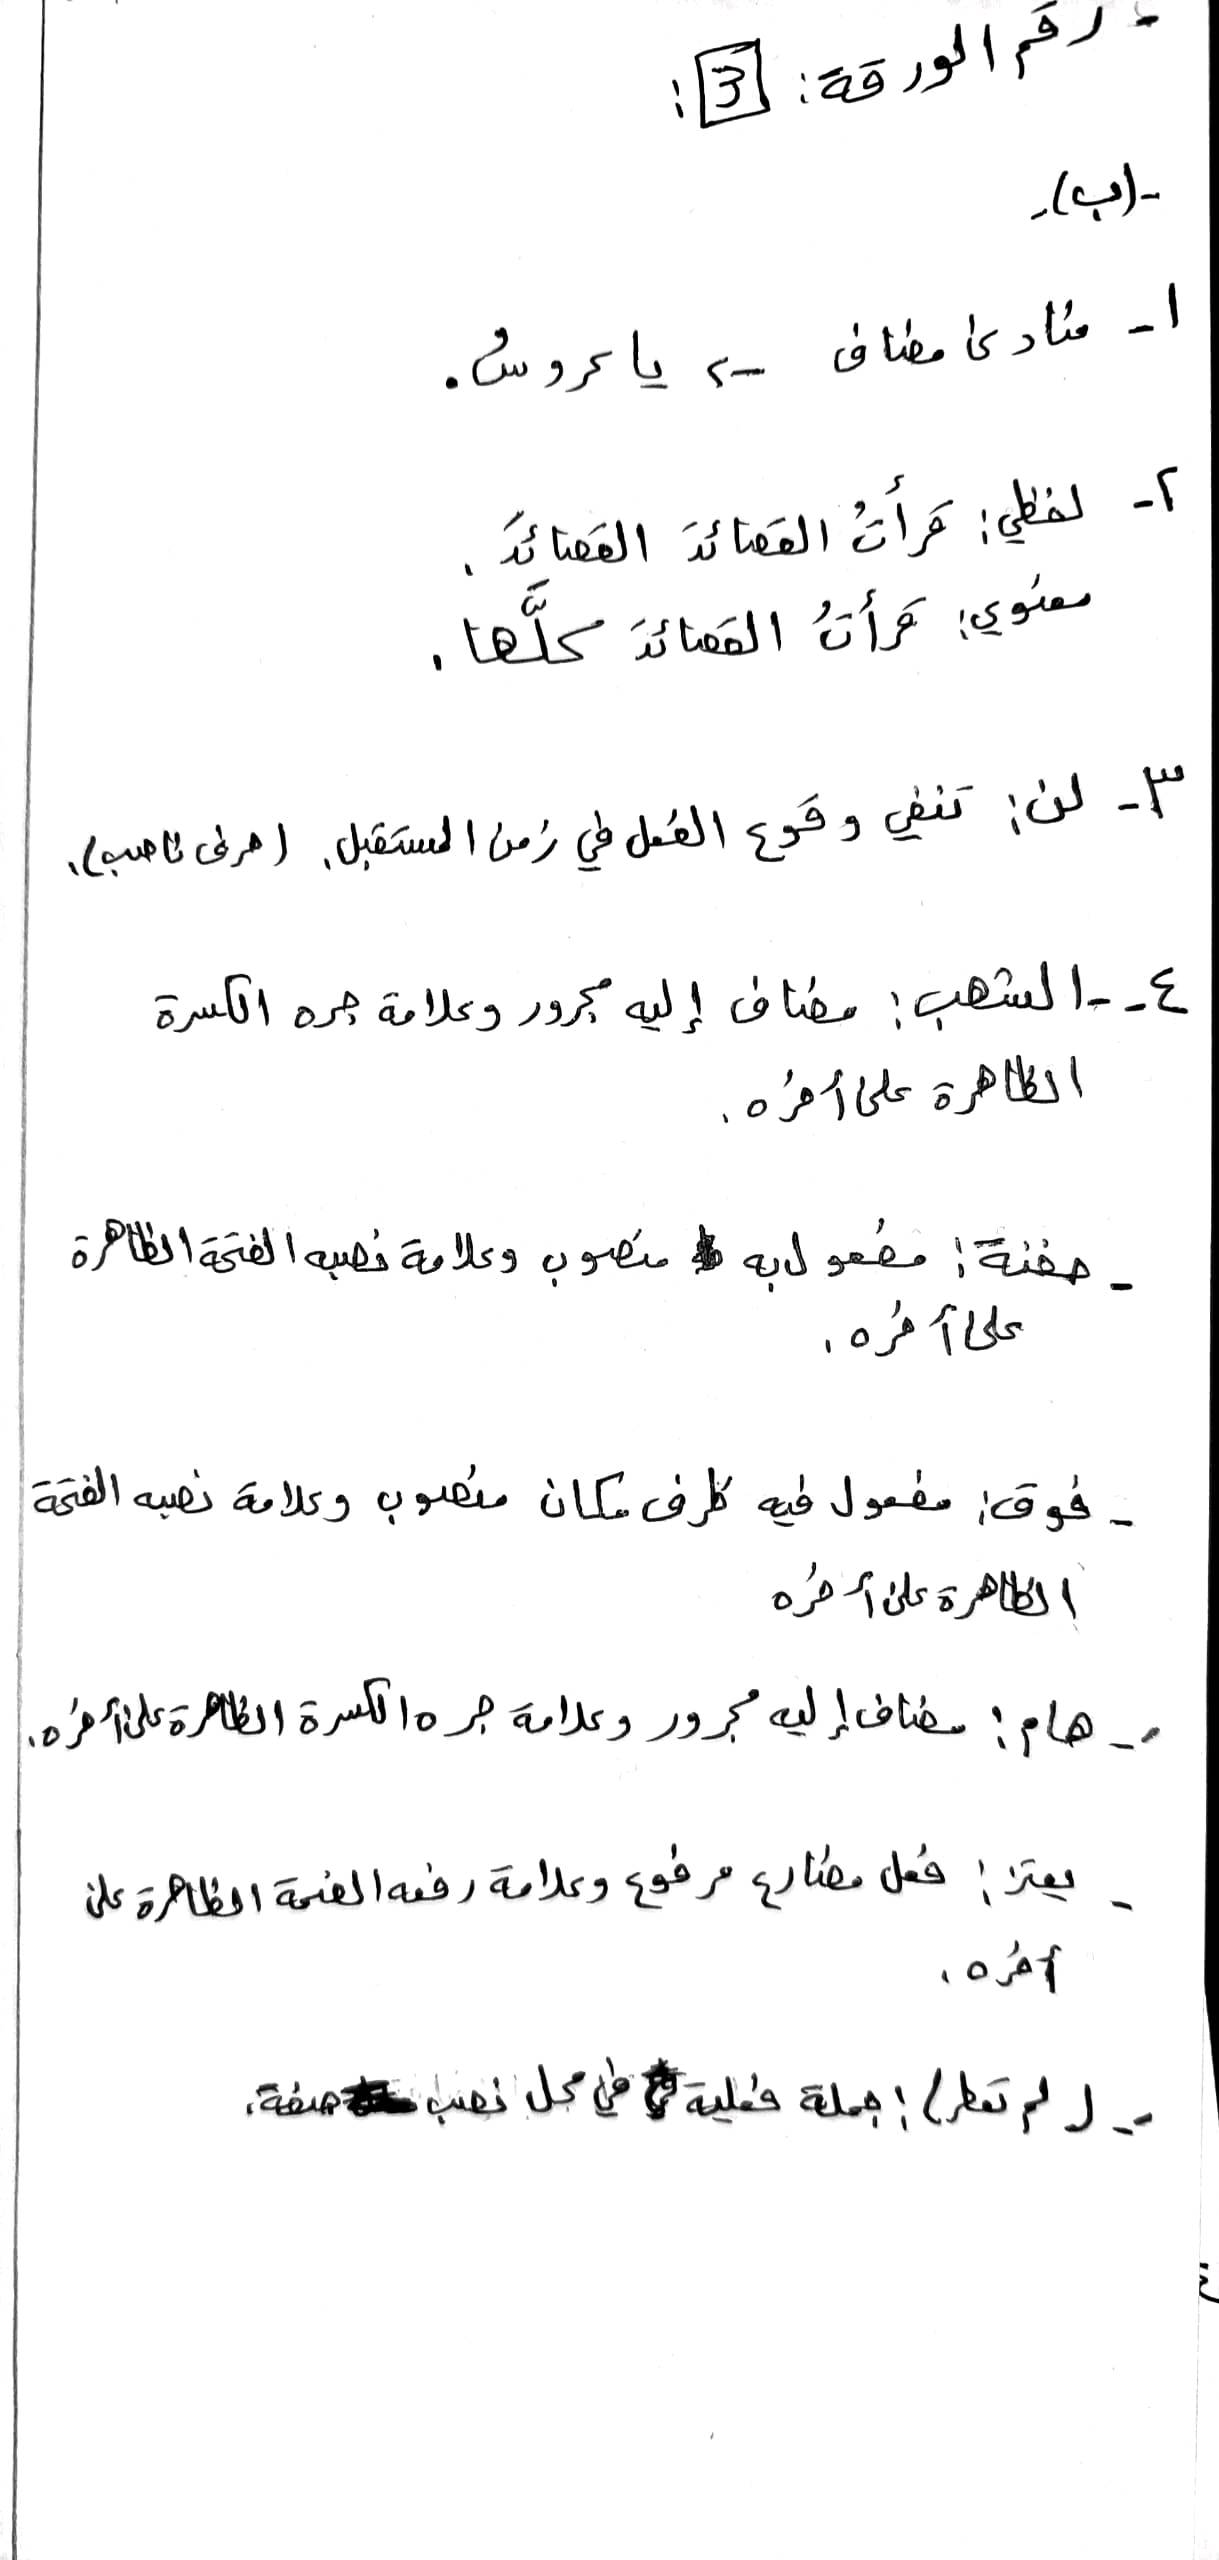 - رقم الورقة: 3:
- (ب).
١- منادى مضاف -> يا عروسُ.
٢- لفظي: قرأتُ القصائدَ القصائدَ.
معنوي: قرأتُ القصائدَ كلَّها.
٣- لن: تنفي وقوع الفعل في زمن المستقبل. (حرف ناصب).
٤- - الشهب: مضاف إليه مجرور وعلامة جره الكسرة
الظاهرة على آخره.
- حفنة: مفعول به منصوب وعلامة نصبه الفتحة الظاهرة
على آخره.
- فوق: مفعول فيه ظرف مكان منصوب وعلامة نصبه الفتحة
الظاهرة على آخره
- هام: مضاف إليه مجرور وعلامة جره الكسرة الظاهرة على آخره.
- يعتز: فعل مضارع مرفوع وعلامة رفعه الضمة الظاهرة على
آخره.
- (لم تعطر): جملة فعلية في محل نصب صفة.